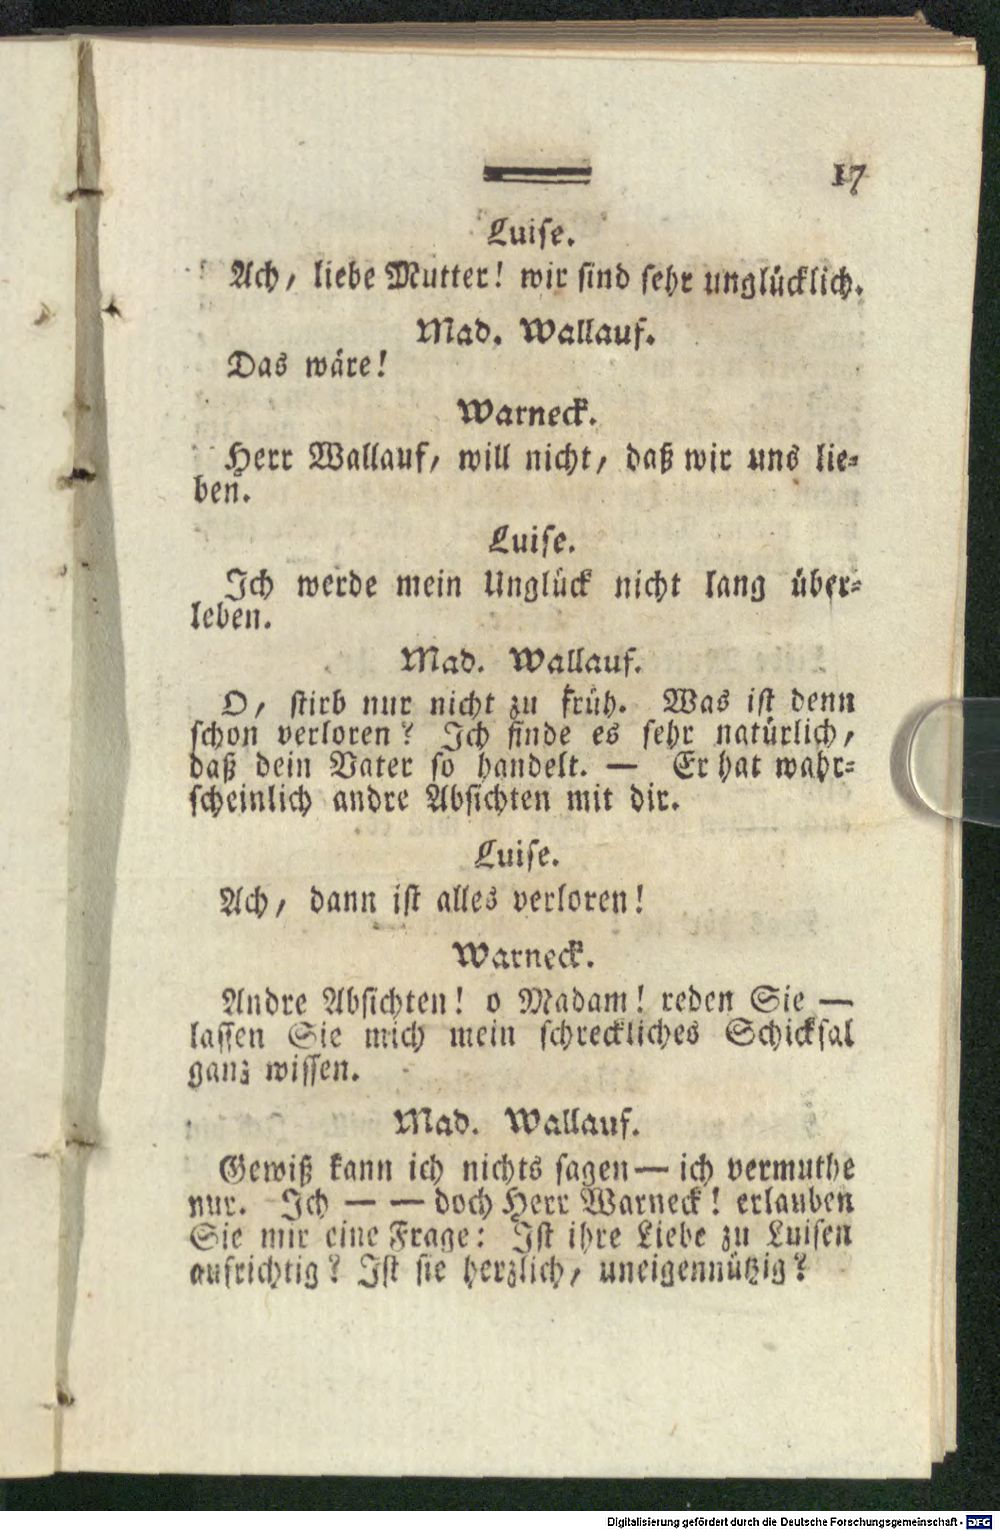 17
Luise.
Ach, liebe Mutter! wir sind sehr unglücklich.
Mad. Wallauf.
Das wäre!
Warneck.
Herr Wallauf, will nicht, daß wir uns lie-
ben.
Luise.
Ich werde mein Unglück nicht lang über-
leben.
Mad. Wallauf.
O, stirb nur nicht zu früh. Was ist denn
schon verloren? Ich finde es sehr natürlich,
daß dein Vater so handelt. — Er hat wahr-
scheinlich andre Absichten mit dir.
Luise.
Ach, dann ist alles verloren!
Warneck.
Andre Absichten! o Madam! reden Sie —
lassen Sie mich mein schreckliches Schicksal
ganz wissen.
Mad. Wallauf.
Gewiß kann ich nichts sagen — ich vermuthe
nur. Ich — — doch Herr Warneck! erlauben
Sie mir eine Frage: Ist ihre Liebe zu Luisen
aufrichtig? Ist sie herzlich, uneigennützig?
Digitalisierung gefördert durch die Deutsche Forschungsgemeinschaft - DFG